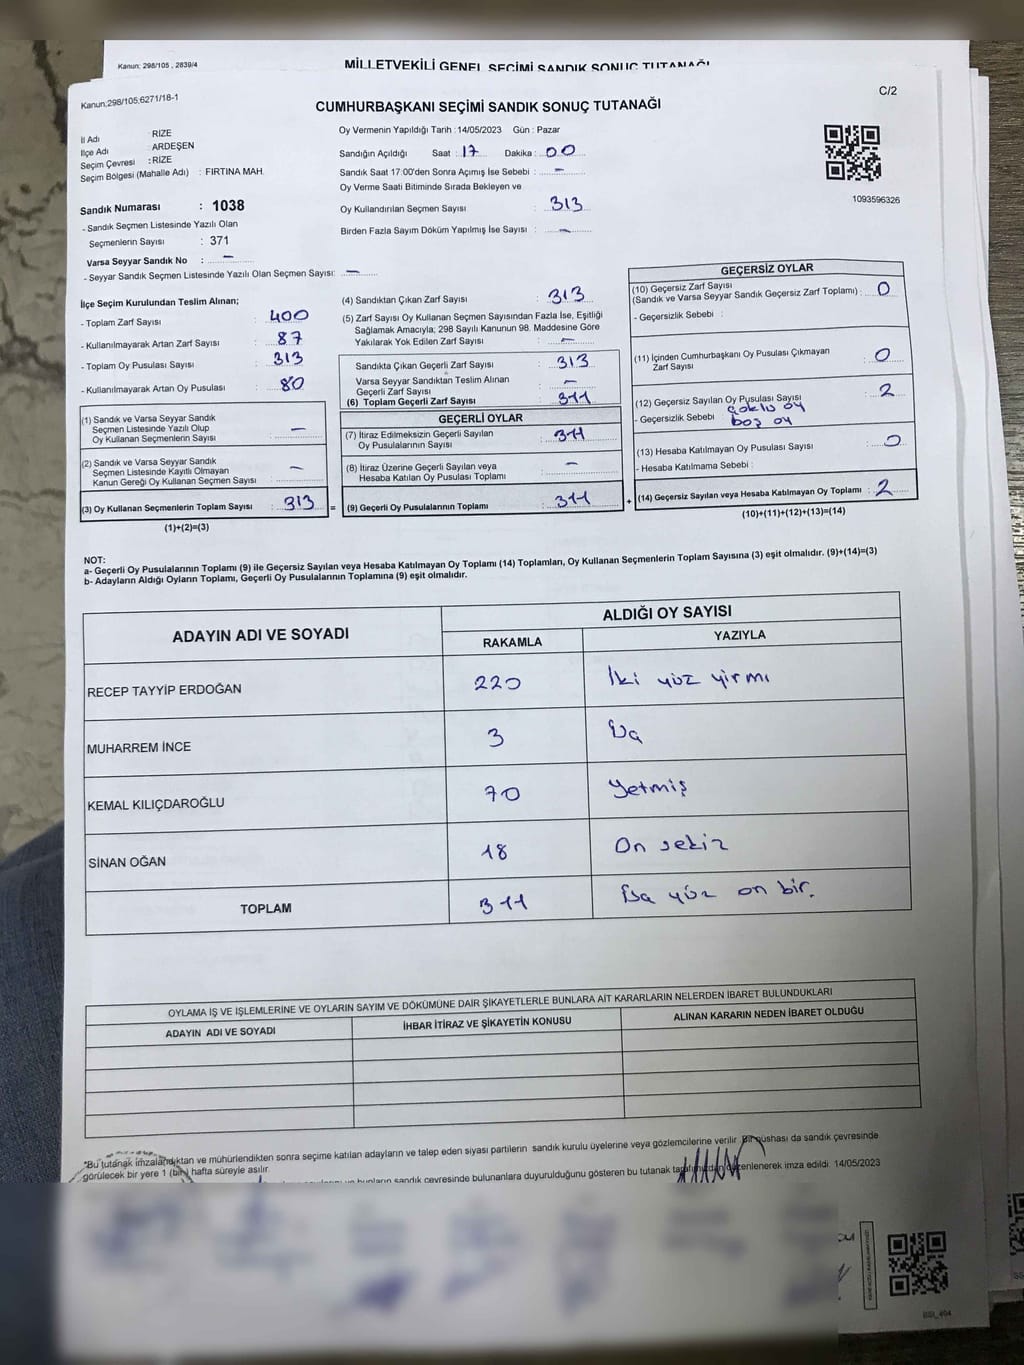 Kanun: 298/105 , 2839/4
MİLLETVEKİLİ GENEL SEÇİMİ SANDIK SONUÇ TUTANAĞI
Kanun;298/105;6271/18-1
C/2
CUMHURBAŞKANI SEÇİMİ SANDIK SONUÇ TUTANAĞI
İl Adı : RİZE
İlçe Adı : ARDEŞEN
Seçim Çevresi : RİZE
Seçim Bölgesi (Mahalle Adı) : FIRTINA MAH.
Sandık Numarası : 1038
- Sandık Seçmen Listesinde Yazılı Olan
Seçmenlerin Sayısı : 371
Varsa Seyyar Sandık No : –
- Seyyar Sandık Seçmen Listesinde Yazılı Olan Seçmen Sayısı: –
Oy Vermenin Yapıldığı Tarih : 14/05/2023 Gün : Pazar
Sandığın Açıldığı Saat : 17 Dakika : 00
Sandık Saat 17:00'den Sonra Açımış İse Sebebi : –
Oy Verme Saati Bitiminde Sırada Bekleyen ve
Oy Kullandırılan Seçmen Sayısı : 313
Birden Fazla Sayım Döküm Yapılmış İse Sayısı : –
1093596326
İlçe Seçim Kurulundan Teslim Alınan;
- Toplam Zarf Sayısı : 400
- Kullanılmayarak Artan Zarf Sayısı : 87
- Toplam Oy Pusulası Sayısı : 313
- Kullanılmayarak Artan Oy Pusulası : 80
(1) Sandık ve Varsa Seyyar Sandık
Seçmen Listesinde Yazılı Olup
Oy Kullanan Seçmenlerin Sayısı : –
(2) Sandık ve Varsa Seyyar Sandık
Seçmen Listesinde Kayıtlı Olmayan
Kanun Gereği Oy Kullanan Seçmen Sayısı : –
(3) Oy Kullanan Seçmenlerin Toplam Sayısı : 313 =
(1)+(2)=(3)
(4) Sandıktan Çıkan Zarf Sayısı : 313
(5) Zarf Sayısı Oy Kullanan Seçmen Sayısından Fazla İse, Eşitliği
Sağlamak Amacıyla; 298 Sayılı Kanunun 98. Maddesine Göre
Yakılarak Yok Edilen Zarf Sayısı : –
Sandıkta Çıkan Geçerli Zarf Sayısı : 313
Varsa Seyyar Sandıktan Teslim Alınan
Geçerli Zarf Sayısı : –
(6) Toplam Geçerli Zarf Sayısı : 311
GEÇERLİ OYLAR
(7) İtiraz Edilmeksizin Geçerli Sayılan
Oy Pusulalarının Sayısı : 311
(8) İtiraz Üzerine Geçerli Sayılan veya
Hesaba Katılan Oy Pusulası Toplamı : –
(9) Geçerli Oy Pusulalarının Toplamı : 311 +
GEÇERSİZ OYLAR
(10) Geçersiz Zarf Sayısı
(Sandık ve Varsa Seyyar Sandık Geçersiz Zarf Toplamı) : 0
- Geçersizlik Sebebi :
(11) İçinden Cumhurbaşkanı Oy Pusulası Çıkmayan
Zarf Sayısı : 0
(12) Geçersiz Sayılan Oy Pusulası Sayısı : 2
- Geçersizlik Sebebi çoklu oy
boş oy
(13) Hesaba Katılmayan Oy Pusulası Sayısı : 0
- Hesaba Katılmama Sebebi :
(14) Geçersiz Sayılan veya Hesaba Katılmayan Oy Toplamı : 2
(10)+(11)+(12)+(13)=(14)
NOT:
a- Geçerli Oy Pusulalarının Toplamı (9) ile Geçersiz Sayılan veya Hesaba Katılmayan Oy Toplamı (14) Toplamları, Oy Kullanan Seçmenlerin Toplam Sayısına (3) eşit olmalıdır. (9)+(14)=(3)
b- Adayların Aldığı Oyların Toplamı, Geçerli Oy Pusulalarının Toplamına (9) eşit olmalıdır.
ADAYIN ADI VE SOYADI
ALDIĞI OY SAYISI
RAKAMLA YAZIYLA
RECEP TAYYİP ERDOĞAN 220 İki yüz yirmi
MUHARREM İNCE 3 Üç
KEMAL KILIÇDAROĞLU 70 Yetmiş
SİNAN OĞAN 18 On sekiz
TOPLAM 311 Üç yüz on bir.
OYLAMA İŞ VE İŞLEMLERİNE VE OYLARIN SAYIM VE DÖKÜMÜNE DAİR ŞİKAYETLERLE BUNLARA AİT KARARLARIN NELERDEN İBARET BULUNDUKLARI
ADAYIN ADI VE SOYADI İHBAR İTİRAZ VE ŞİKAYETİN KONUSU ALINAN KARARIN NEDEN İBARET OLDUĞU
"Bu tutanak imzalandıktan ve mühürlendikten sonra seçime katılan adayların ve talep eden siyasi partilerin sandık kurulu üyelerine veya gözlemcilerine verilir. Bir nüshası da sandık çevresinde
görülecek bir yere 1 (bir) hafta süreyle asılır.
bunların sandık çevresinde bulunanlara duyurulduğunu gösteren bu tutanak tarafımızdan düzenlenerek imza edildi. 14/05/2023